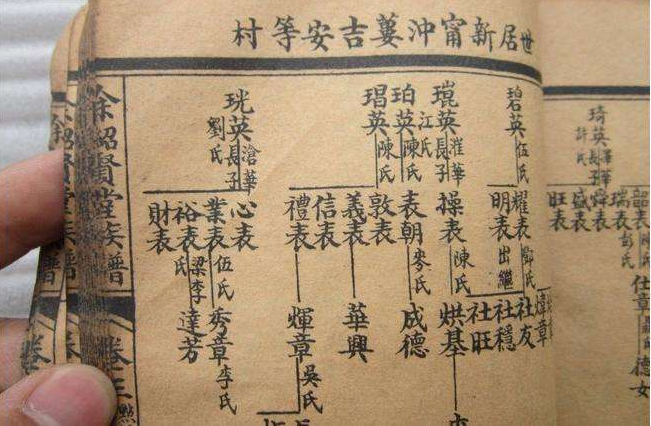 世居新甯沖蔞吉安等村
琦英 澤華長子 許氏
韶表 陳氏
瑞表 彭氏
舜表
盛表
旺表
仕章 聶氏
德女
珀英 伍氏
耀表 鄧氏
明表 出繼
煒章
社友
社穩
社旺
琨英 漼華長子 江氏
操表 陳氏
烘基
珀英 陳氏
表朝 麥氏
成德
琩英 陳氏
敦表
義表
信表
禮表
華興
煇章 吳氏
珖英 滄華長子 劉氏
心表
業表 伍氏
裕表 梁李氏
財表
秀章 李氏
達芳
余紹賢堂族譜
卷三